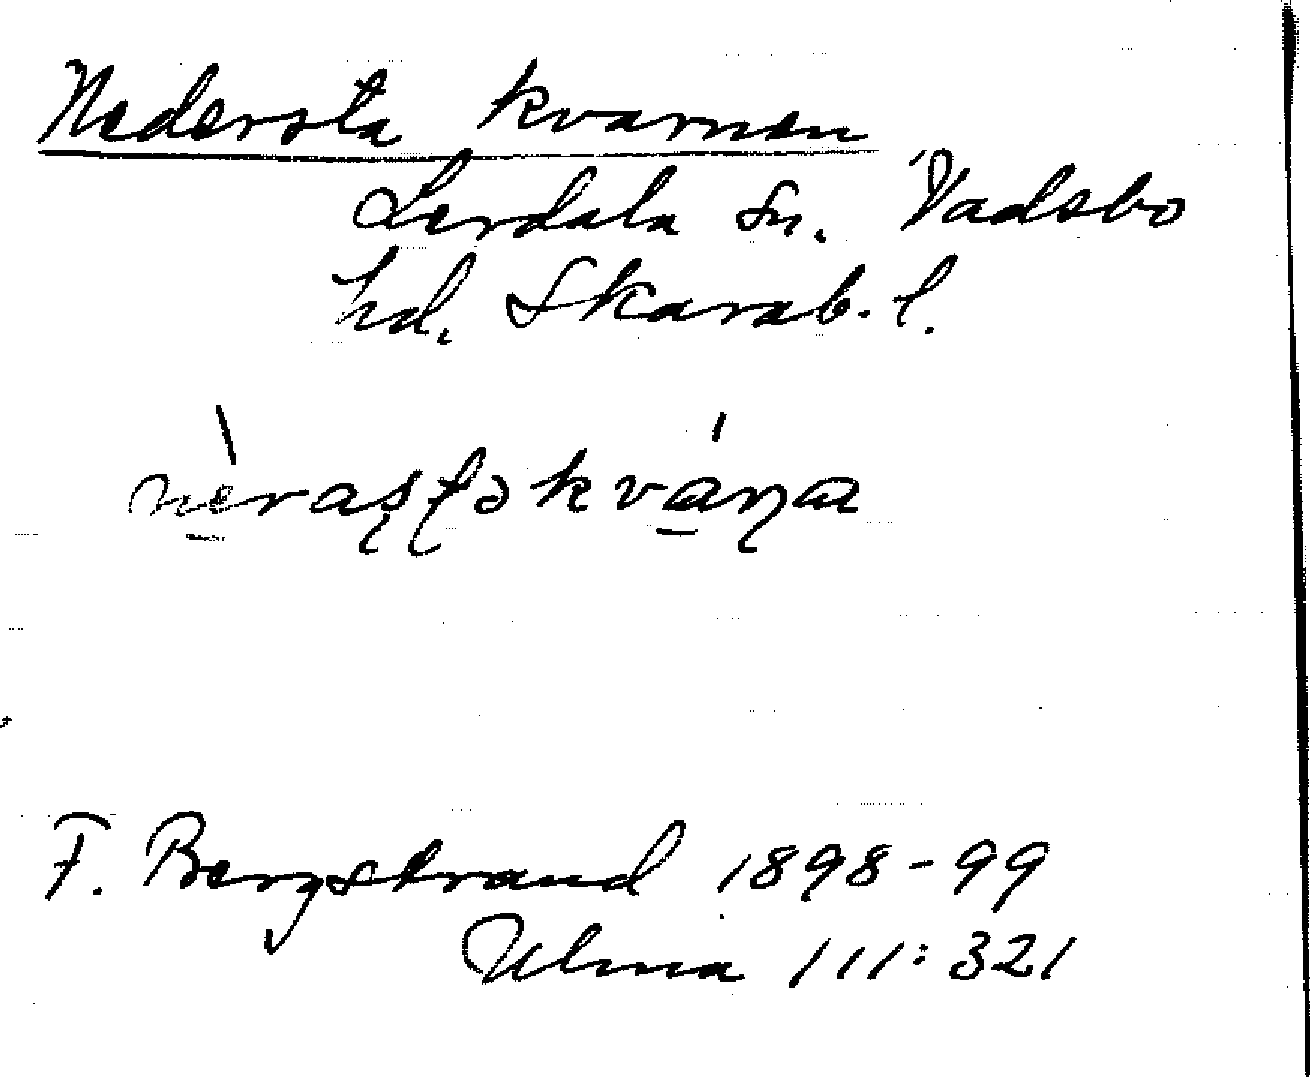 Nedersta kvarnen
Lerdala sn. Vadsbo
hd. Skarab. l.
nèraʂʈəkváɳa
F. Bergstrand 1898-99
Ulma 111:321